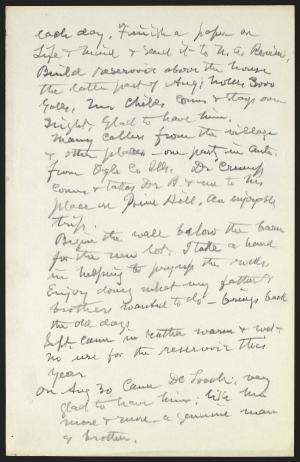 each day. Finish a paper on
Life & Mind & send it to N. A. Review.
Build reservoir above the house
the latter part of Aug; holds 3000
Gals. Mr Childs comes & stays over
night, glad to have him.
Many callers from the village
& other places - one party in auto.
from Ogle Co Ills. Dr Crump
comes & takes Dr B. & me to his
place on Pine Hill. An enjoyable
trip.
Begin the wall below the barn
for the new lot. I take a hand
in helping to pry up the rocks
Enjoy doing what my father &
brothers wanted to do - brings back
the old days
Sept. came in rather warm & wet -
No use for the reservoir this
year
On Aug 30 came De Loach; very
glad to have him; like him
more & more - a genuine man
& brother.